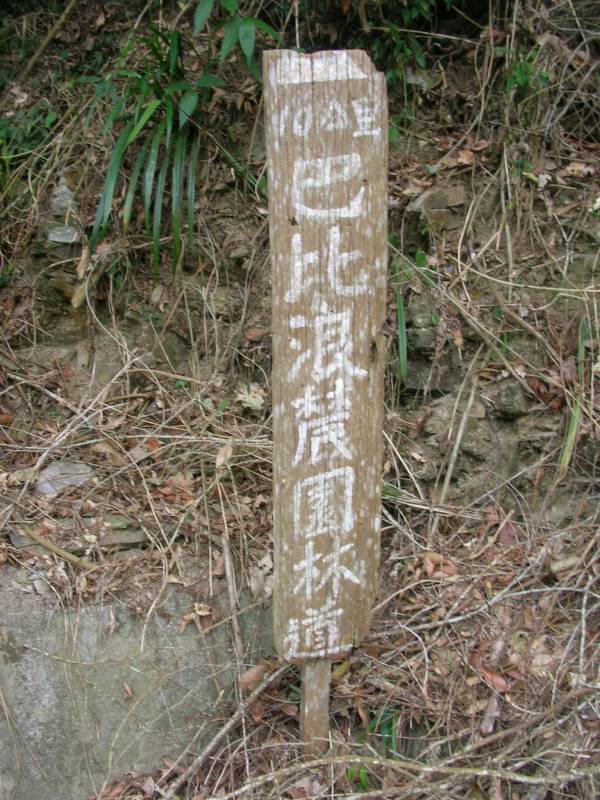 10公里
巴比浪農園林道